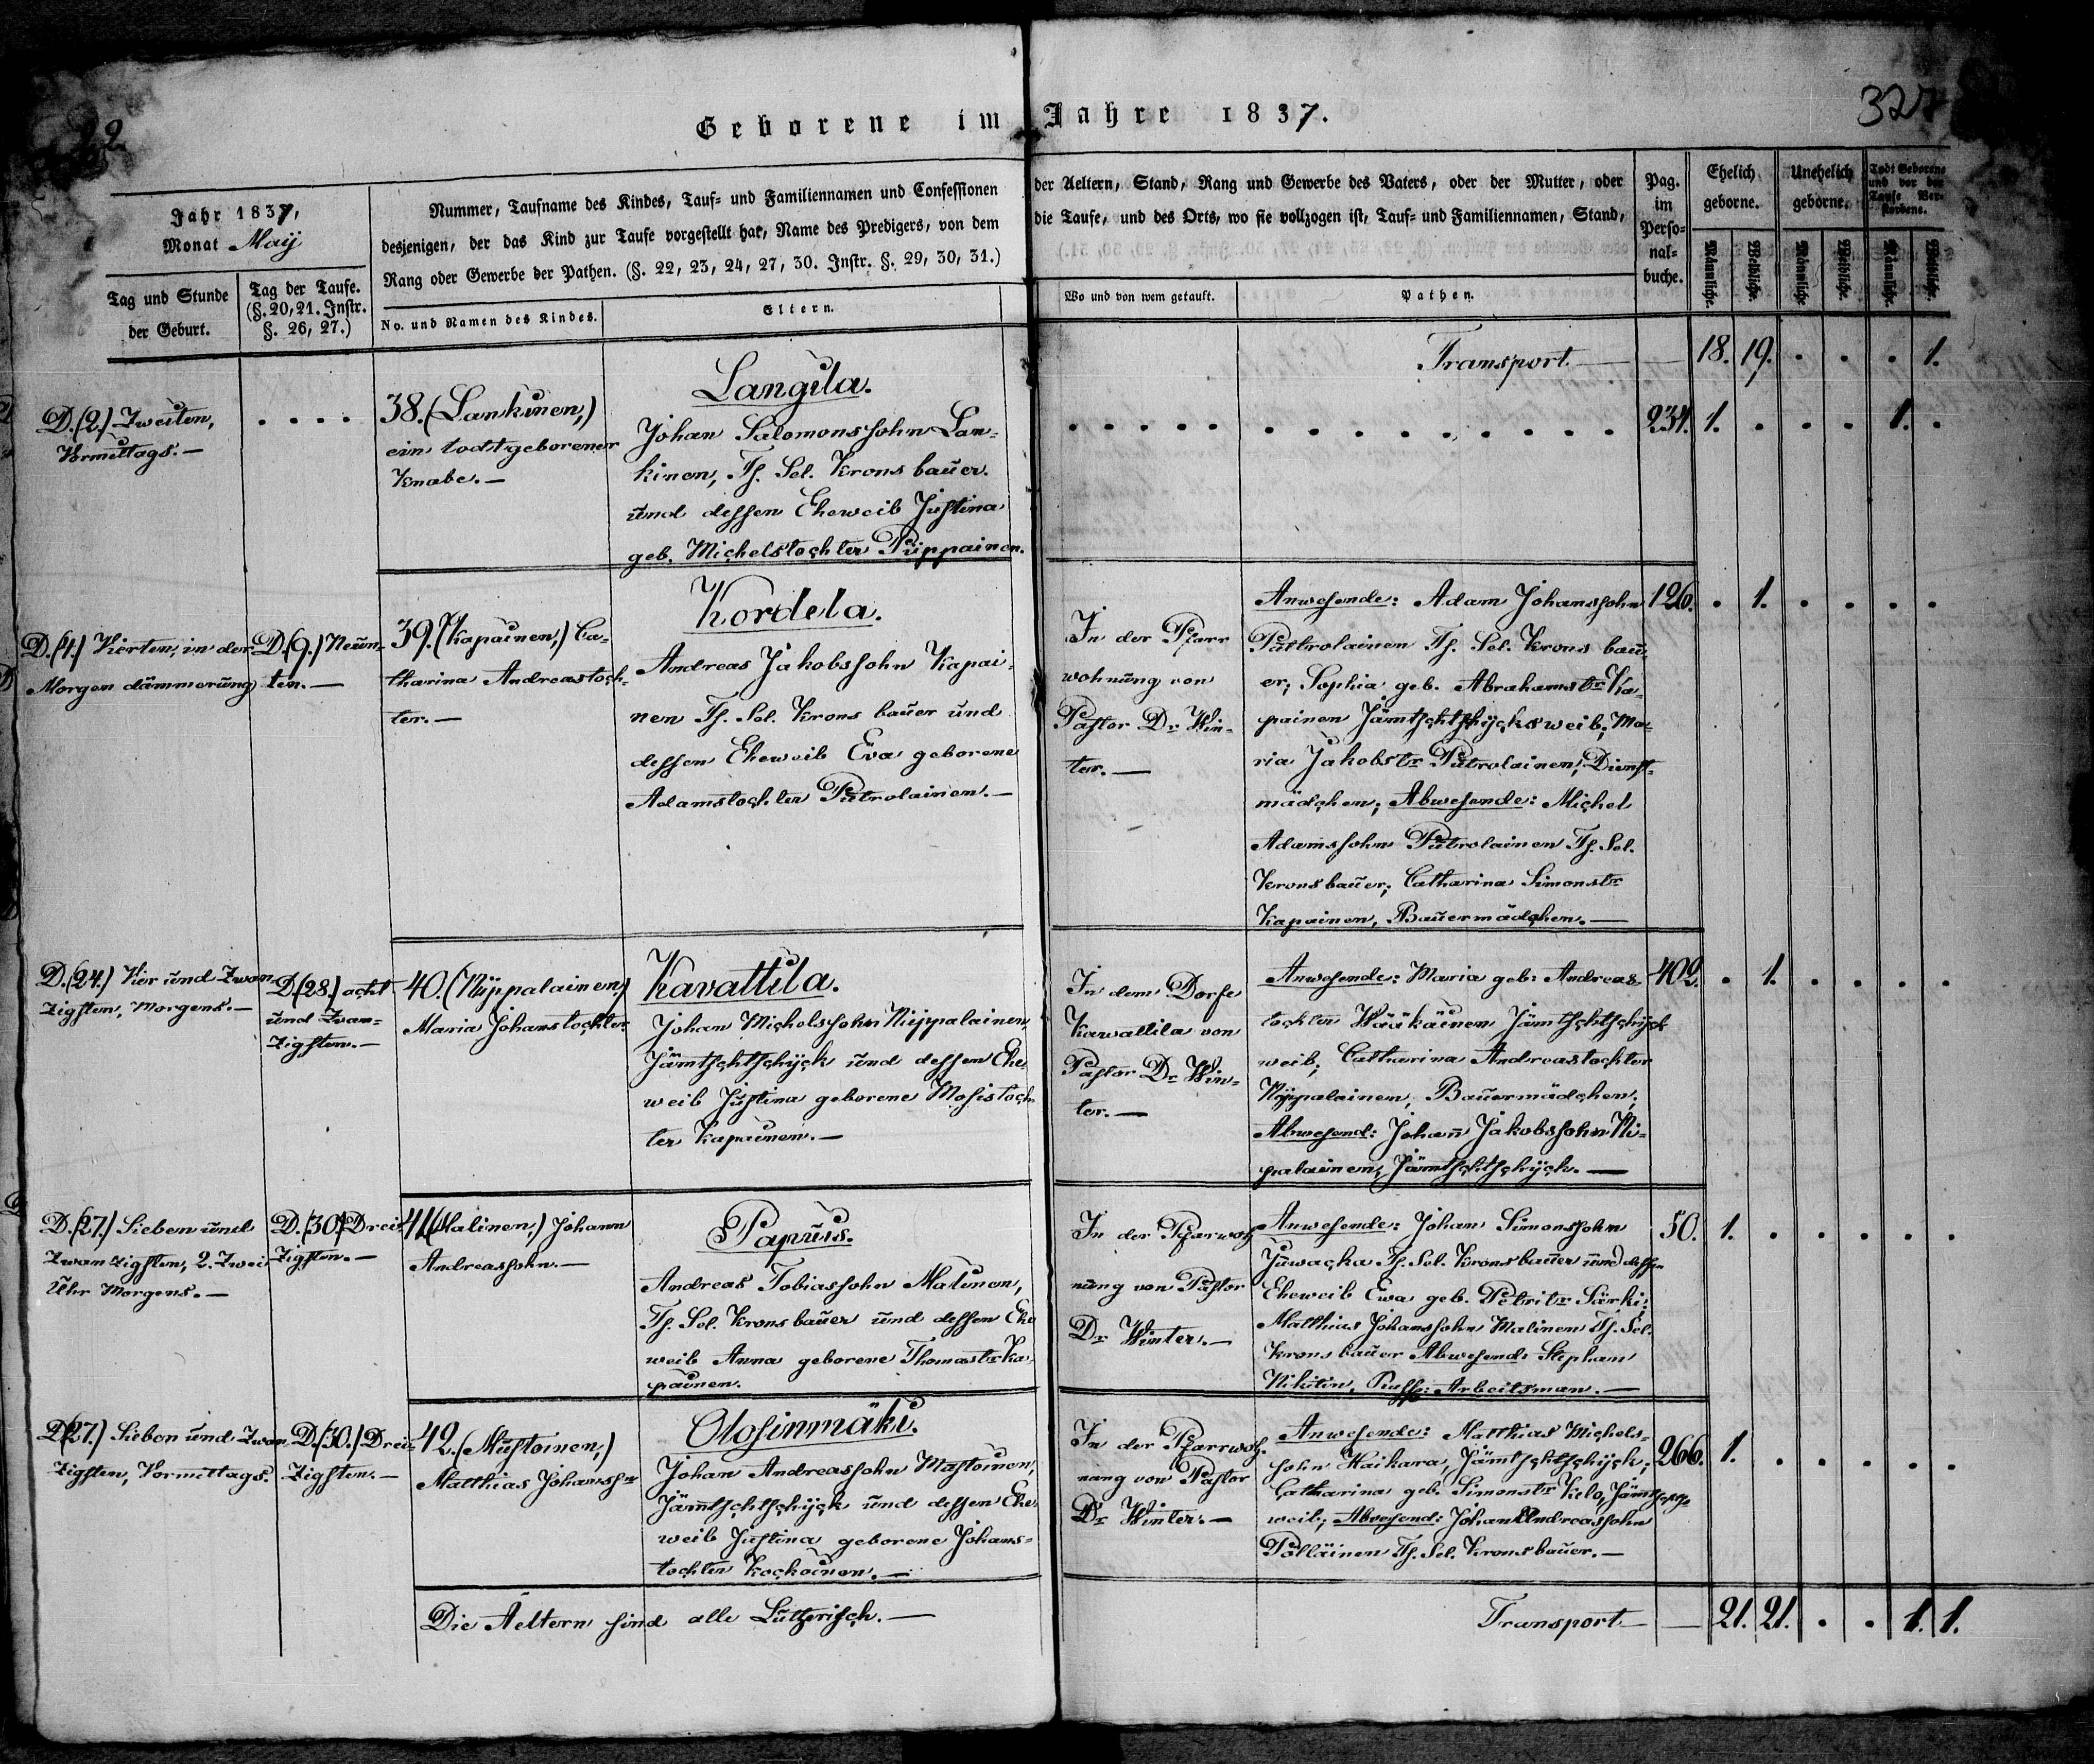 22.
Geborene im Jahre 1837.
327
Jahr 1837,
Monat Maÿ
Tag und Stunde
der Geburt.
Tag der Taufe.
(§. 20, 21. Instr.
§. 26, 27.)
Nummer, Taufname des Kindes, Tauf- und Familiennamen und Confessionen
desjenigen, der das Kind zur Taufe vorgestellt hat, Name des Predigers, von dem
Rang oder Gewerbe der Pathen. (§. 22, 23, 24, 27, 30. Instr. §. 29, 30, 31.)
No. und Namen des Kindes.
Eltern.
der Aeltern, Stand, Rang und Gewerbe des Vaters, oder der Mutter, oder
die Taufe, und des Orts, wo sie vollzogen ist, Tauf- und Familiennamen, Stand,
Wo und von wem getauft.
Pathen.
Pag.
im
Perso-
nal-
buche.
Ehelich
geborne.
Unehelich
geborne.
Todt Geborene
und vor der
Taufe Ver-
storbene.
Männliche.
Weibliche.
Männliche.
Weibliche.
Männliche.
Weibliche.
Transport. — 18. 19. . . . 1.
D. (2.) Zweiten,
Vormittags. —
. . . .
38. (Lankinen,)
ein todtgeborener
Knabe. —
Langila.
Johan Salomonssohn Lan-
kinen, Zs. Sel. Krons bauer
und dessen Eheweib Justina
geb. Michelstochter Puppainen.
234. 1. . . . 1. .
D. (4.) Vierten, in der
Morgen dämmerung
D. (9.) Neun-
ten. —
39. (Kapainen,) Ca-
tharina Andreastoch-
ter. —
Kordela.
Andreas Jakobssohn Kapai-
nen Zs. Sel. Krons bauer und
dessen Eheweib Eva geborene
Adamstochter Putrolainen. —
In der Pfarr
wohnung von
Pastor Dr. Win-
ter. —
Anwesende: Adam Johanssohn
Puttrolainen Zs. Sel. Krons bau-
er; Sophia geb. Abrahamstr Ka-
painen Jämtschtschÿcks weib; Ma-
ria Jakobstr Putrolainen, Dienst-
mädchen; Abwesende: Michel
Adamssohn Putrolainen Zs. Sel.
Kronsbauer; Catharina Simonstr
Kapainen, Bauermädchen. —
126. . 1. . . . .
D. (24.) Vier und Zwan-
zigsten, Morgens. —
D. (28.) acht
und Zwan-
zigsten. —
40. (Nüppalainen,)
Maria Johanstochter
Kavattila.
Johan Michelssohn Nüppalainen,
Jämtschtschÿck und dessen Ehe-
weib Justina geborene Mosistoch-
ter Kapainen. —
In dem Dorfe
Kawattila von
Pastor Dr. Win-
ter. —
Anwesende: Maria geb. Andreas-
tochter Wääkäinen Jämtschtschÿck
weib; Catharina Andreastochter
Nÿppalainen, Bauermädchen;
Abwesend: Johan̄ Jakobssohn Ni-
palainen, Jämtschtschÿck. —
402. . 1. . . . .
D. (27.) Sieben und
Zwanzigsten, 2. Zwei
Uhr Morgens. —
D. (30.) Drei-
zigsten. —
41. (Malinen,) Johann
Andreassohn. —
Papuis.
Andreas Tobiassohn Malinen,
Zs. Sel. Krons bauer und dessen Ehe
weib Anna geborene Thomastr Ka-
painen.
In der Pfarrwoh
nung von Pastor
Dr. Winter. —
Anwesende: Johan Simonssohn
Juwacka Zs. Sel. Krons bauer und dessen
Eheweib Ewa geb. Petritr Särki;
Matthias Johanssohn Malinen Zs. Sel.
Krons bauer Abwesend: Stephan
Nikitin, Russ: Arbeitsman. —
50. 1. . . . . .
D. (27.) Sieben und Zwan-
zigsten, Vormittags.
D. (30.) Drei-
zigsten. —
42. (Mustoinen,)
Matthias Johanssn
Olosinmäki.
Johan Andreassohn Mustoinen,
Jämtschtschÿck und dessen Ehe-
weib Justina geborene Johans-
tochter Kockoinen. —
In der Pfarrwoh.
nung von Pastor
Dr. Winter. —
Anwesende: Matthias Michels-
sohn Haikara, Jämtschtschÿck;
Catharina geb. Simonstr Kelo, Jämtschtsch.
weib; Abwesend: Johan Andreassohn
Pölläinen Zs. Sel. Kronsbauer. —
266. 1. . . . . .
Die Aeltern sind alle Lutherisch. —
Transport — 21. 21. . . 1. 1.